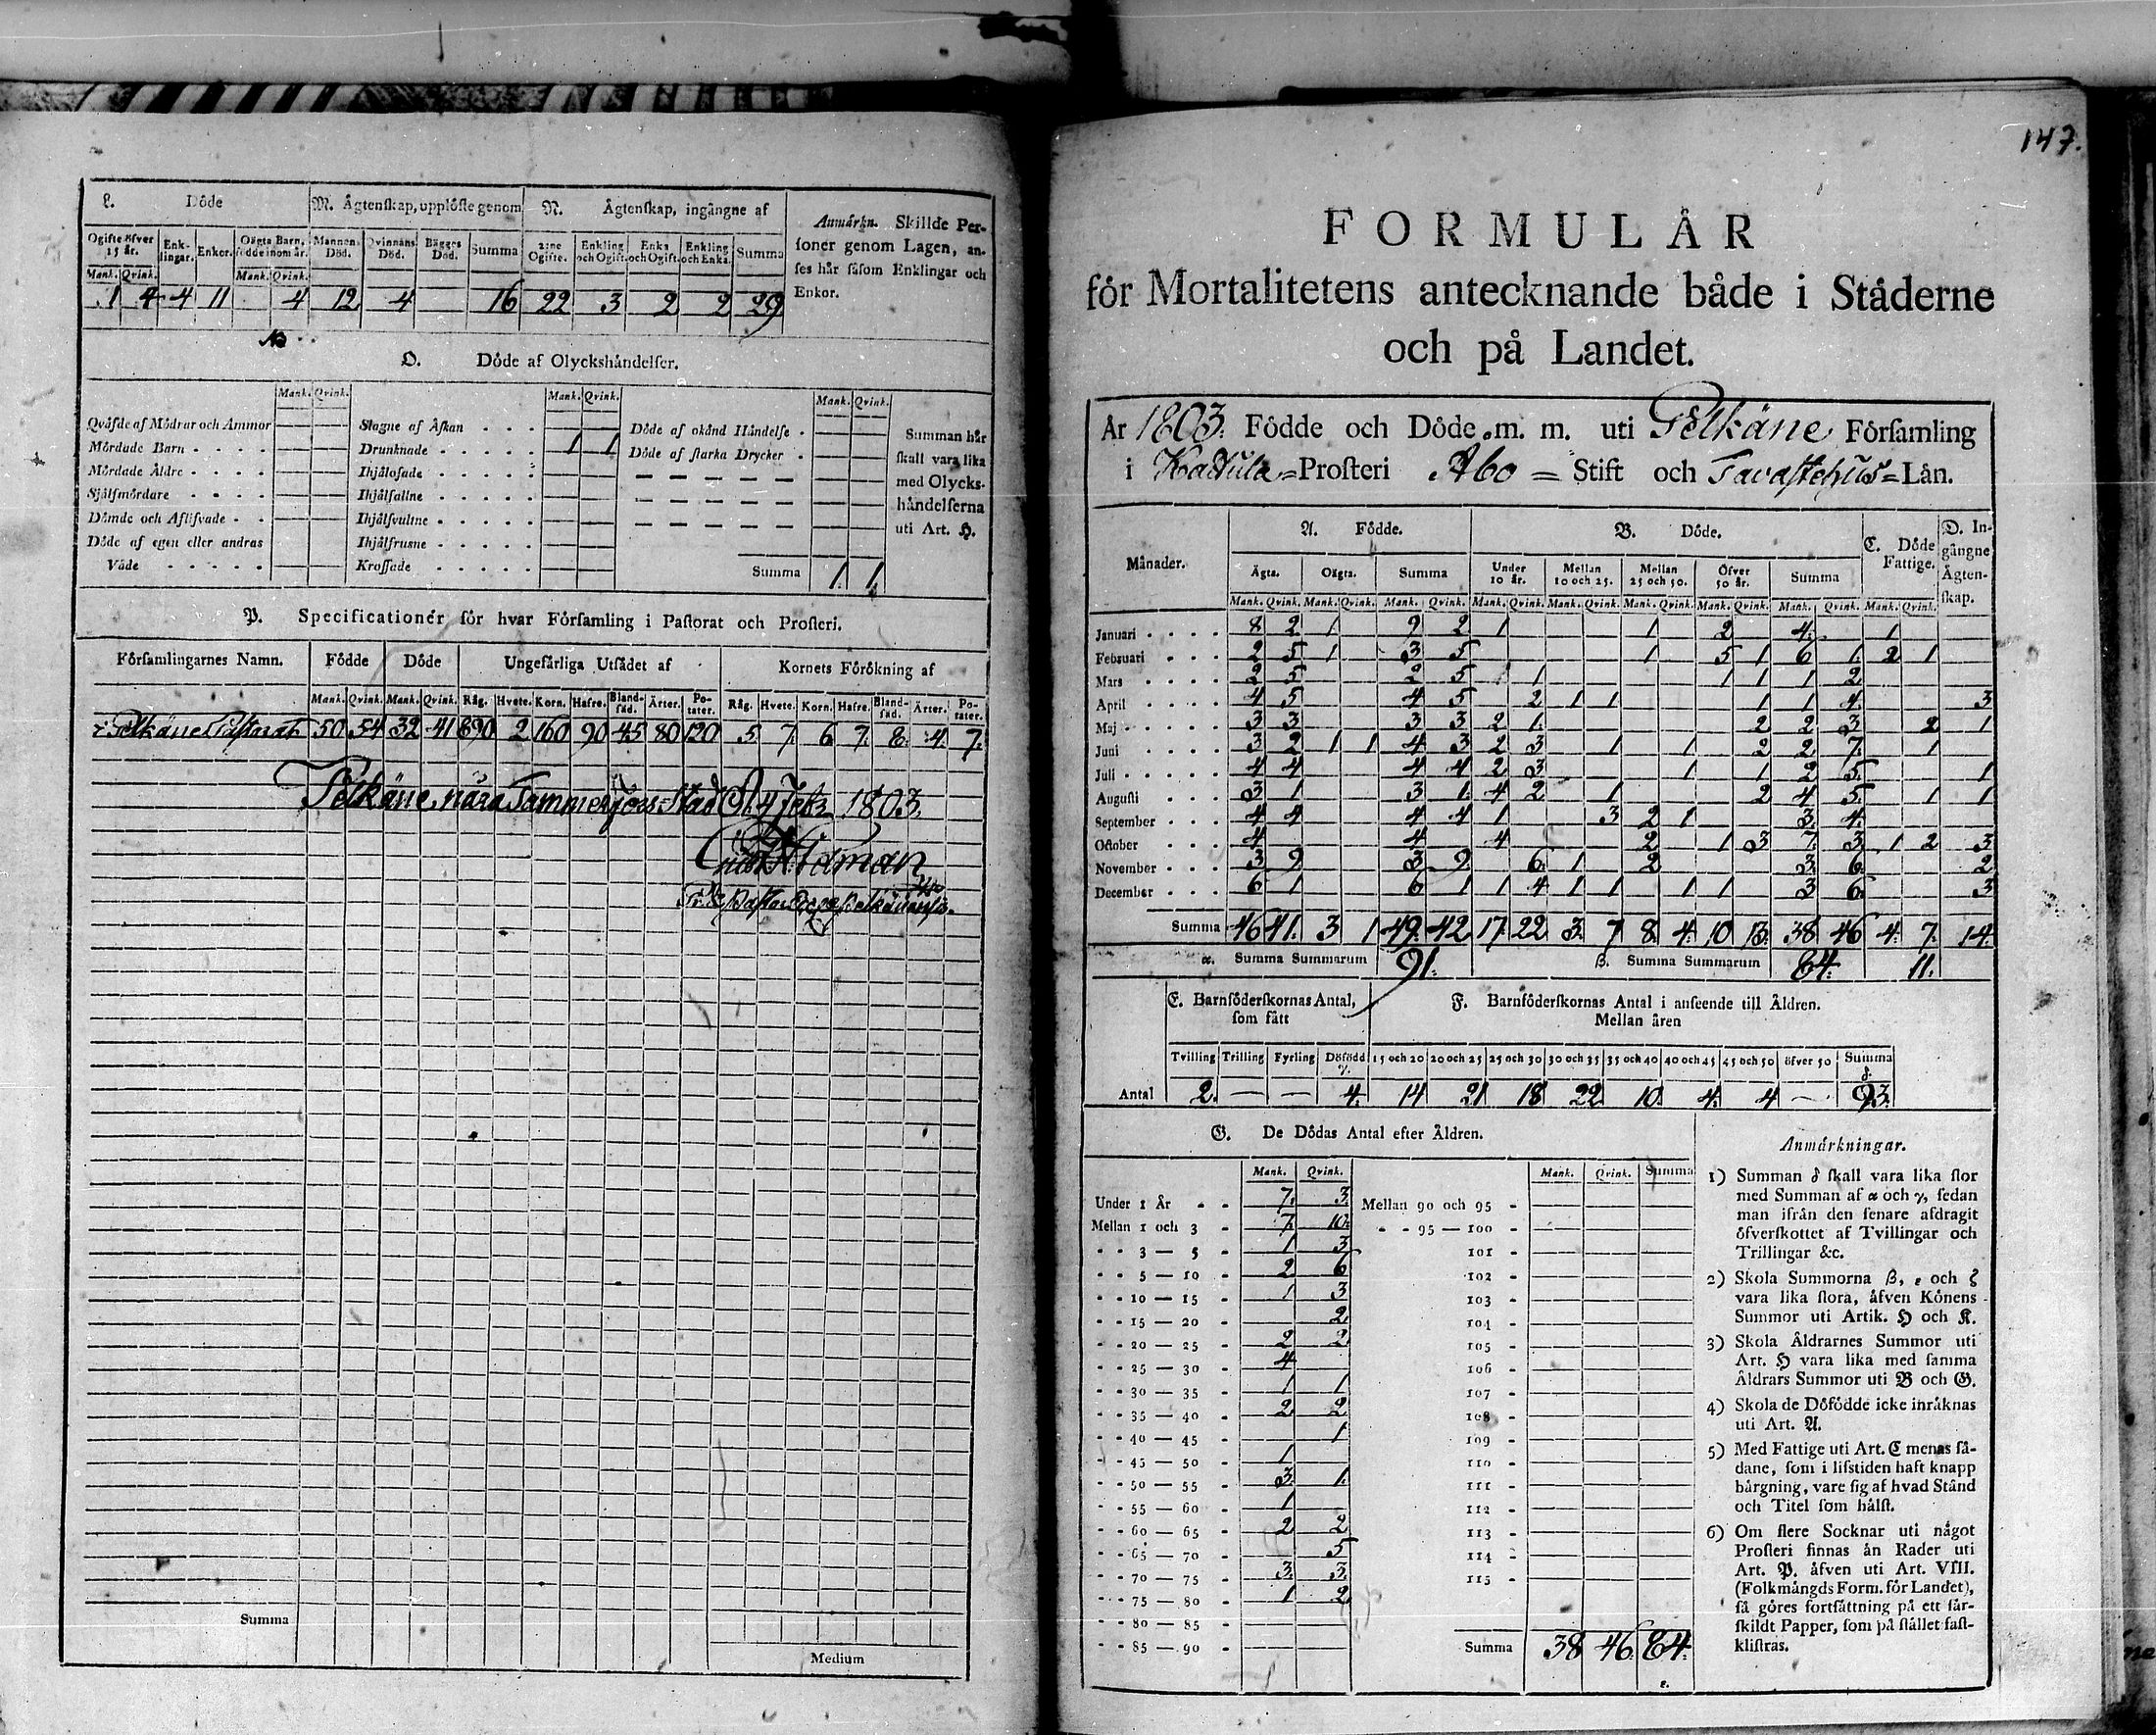 L. Döde
M. Ägtenskap, upplöste genom
N. Ägtenskap, ingångne af
Anmärkn. Skillde Personer genom Lagen, anses här såsom Enklingar och Enkor.
Ogifte öfver 15 år. Enklingar. Enkor. Oägta Barn, födde inom år. Mannens Död. Qvinnans Död. Bägges Död. Summa 2:ne Ogifte. Enkling och Ogift. Enka och Ogift. Enkling och Enka. Summa
Mank. Qvink. Mank. Qvink.
1 4 4 11 4 12 4 16 22 3 2 2 29
O. Döde af Olyckshändelser.
Mank. Qvink. Mank. Qvink. Mank. Qvink.
Qväfde af Mödrar och Ammor
Mördade Barn
Mördade Äldre
Sjelfmördare
Dömde och Aflifvade
Döde af egen eller andras
Våde
Slagne af Åskan
Drunknade 1 1
Ihjälosade
Ihjälfallne
Ihjälsvultne
Ihjälfrusne
Krossade
Döde af okänd Händelse
Döde af starka Drycker
Summa 1. 1.
Summan här
skall vara lika
med Olycks-
händelserna
uti Art. H.
P. Specificationer för hvar Församling i Pastorat och Prosteri.
Församlingarnes Namn. Födde Döde Ungefärliga Utsädet af Kornets Förökning af
Mank. Qvink. Mank. Qvink. Råg. Hvete. Korn. Hafre. Blandsäd. Ärter. Potater. Råg. Hvete. Korn. Hafre. Blandsäd. Ärter. Potater.
Pelkäne Pastorat 50 54 32 41 690 2 160 90 45 80 120 5 7. 6 7. 8. 4. 7.
Pelkäne nära Tammerfors Stad d. 4 Feb. 1803.
Summa
Medium
147.
FORMULÄR
för Mortalitetens antecknande både i Städerne
och på Landet.
År 1803. Födde och Döde m. m. uti Pelkäne Församling
i Hattula = Prosteri Abo = Stift och Tavastehus = Län.
Månader. A. Födde. B. Döde. C. Döde Fattige. D. Ingångne Ägtenskap.
Ägta. Oägta. Summa Under 10 år. Mellan 10 och 25. Mellan 25 och 50. Öfver 50 år. Summa
Mank. Qvink. Mank. Qvink. Mank. Qvink. Mank. Qvink. Mank. Qvink. Mank. Qvink. Mank. Qvink. Mank. Qvink. Mank. Qvink.
Januari 8 2 1 9 2 1 1 2 4. 1
Februari 2 5 1 3 5 1 5 1 6 1 2 1
Mars 2 5 2 5 1 1 1 1 2
April 4 5 4 5 2 1 1 1 1 4 3
Maj 3 3 3 3 2 1 2 2 3 2 1
Juni 3 2 1 1 4 3 2 3 1 1 2 2 7. 1
Juli 4 4 4 4 2 3 1 1 2 5. 1
Augusti 3 1 3 1 4 2 1 2 4 5. 1 1
September 4 4 4 4 1 3 2 1 3 4
October 4 4 4 2 1 3 7. 3 1 2 3
November 3 9 3 9 6 1 2 3 6 2
December 6 1 6 1 1 4 1 1 1 1 3 6 3
Summa 46 41. 3 1 49. 42 17 22 3. 7 8 4. 10 13. 38 46 4. 7. 14.
α. Summa Summarum 91. β. Summa Summarum 84. 11.
E. Barnföderskornas Antal, som fått
F. Barnföderskornas Antal i anseende till Åldren.
Mellan åren
Tvilling Trilling Fyrling Dödfödd γ. 15 och 20 20 och 25 25 och 30 30 och 35 35 och 40 40 och 45 45 och 50 öfver 50 Summa δ.
Antal 2. — — 4. 14 21 18 22 10. 4. 4 — 93.
G. De Dödas Antal efter Åldren.
Mank. Qvink. Mank. Qvink. Summa
Under 1 År 7. 3 Mellan 90 och 95
Mellan 1 och 3 7. 10. 95 — 100
3 — 5 1 3 101
5 — 10 2 6 102
10 — 15 1 3 103
15 — 20 2 104
20 — 25 2 2 105
25 — 30 4 106
30 — 35 1 1 107
35 — 40 2 2 108
40 — 45 1 109
45 — 50 1 110
50 — 55 3 1. 111
55 — 60 1 112
60 — 65 2 2 113
65 — 70 5 114
70 — 75 3 3 115
75 — 80 1 2
80 — 85
85 — 90 Summa 38 46. 84.
ε.
Anmärkningar.
1) Summan δ skall vara lika stor
med Summan af α och γ, sedan
man ifrån den senare afdragit
öfverskottet af Tvillingar och
Trillingar &c.
2) Skola Summorna β, ε och ζ
vara lika stora, äfven Könens
Summor uti Artik. H och K.
3) Skola Åldrarnes Summor uti
Art. H vara lika med samma
Åldrars Summor uti B och G.
4) Skola de Dödfödde icke inräknas
uti Art. A.
5) Med Fattige uti Art. C menas så-
dane, som i lifstiden haft knapp
bärgning, vare sig af hvad Stånd
och Titel som hälst.
6) Om flere Socknar uti något
Prosteri finnas än Rader uti
Art. P. äfven uti Art. VIII.
(Folkmängds Form. för Landet),
så göres fortsättning på ett sär-
skildt Papper, som på stället fast-
klistras.